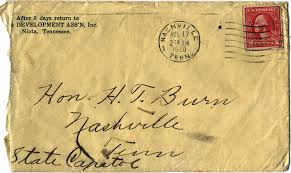 After 5 days return to
DEVELOPMENT ASS'N, Inc.
Niota, Tennessee.
NASHVILLE
AUG 17
1920
TENN.
Hon. H. T. Burn
Nashville
Tenn
State Capitol